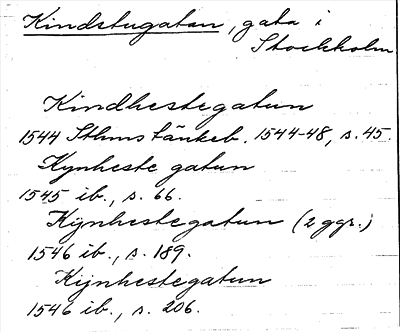 Kindstugatan, gata i
Stockholm
Kindhestegatun
1544 Sthms tänkeb. 1544-48, s. 45.
Kynheste gatun
1545 ib., s. 66.
Kijnhestegatun (2 ggr.)
1546 ib., s. 189.
Kijnhestegatun
1546 ib., s. 206.